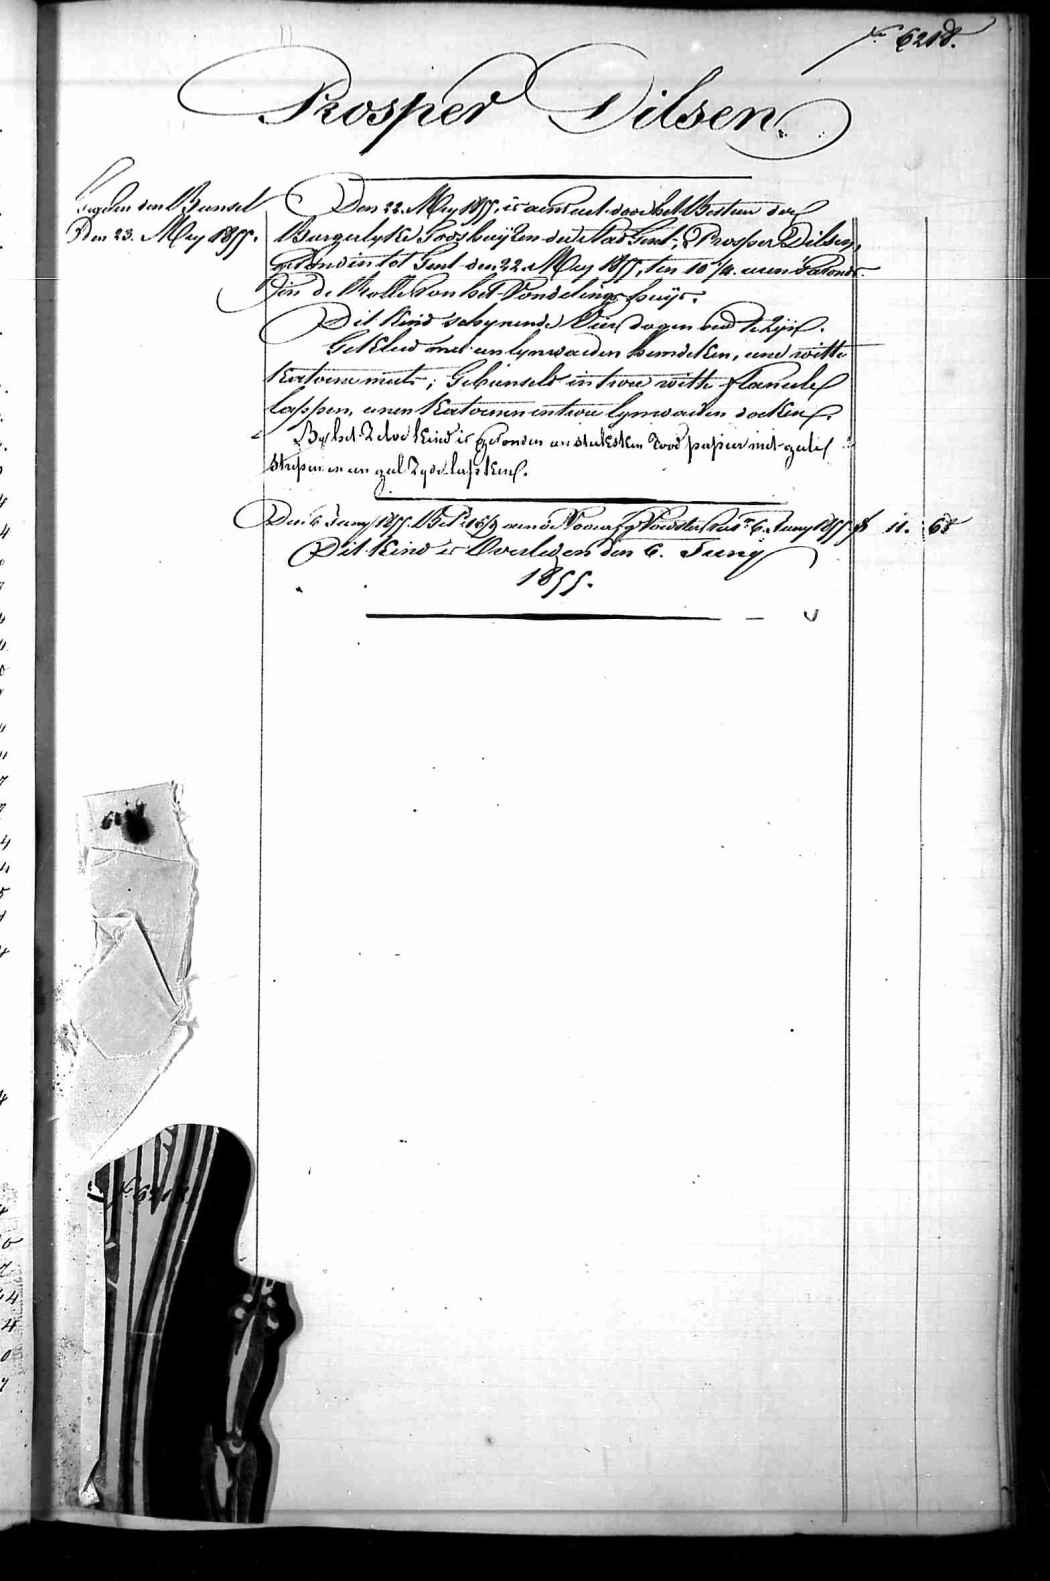 N.º 6218.
Prosper Dilsen.
den Bunsel
Den 23. Mey 1855.
Den 22. Mey 1855, is aenveerd door het Bestuer der
Burgerlyke Godshuyzen der Stad Gent, Prosper Dilsen,
gevonden tot Gent den 22. Mey 1855, ten 10 1/4. uren 's avonds
in de Rolle van het Vondelings huijs.
Dit Kind schynende Vier dagen oud te Zijn.
Gekleed met een lynwaeden hemdeken, eene witte
Kattoene muts; Gebunseld in twee witte flanelle
lappen, eenen Kattoenen en twee lynwaeden doeken.
By het Zelve Kind is gevonden een stuksken rood papier met geele
strepen en een geel Zyde lapken.
Den 6 Juny 1855. Bet. aen de Voedster tot 6. Juny 1855 f 11. 68
Dit Kind is Overleden den 6. Juny
1855.
N.º 6218